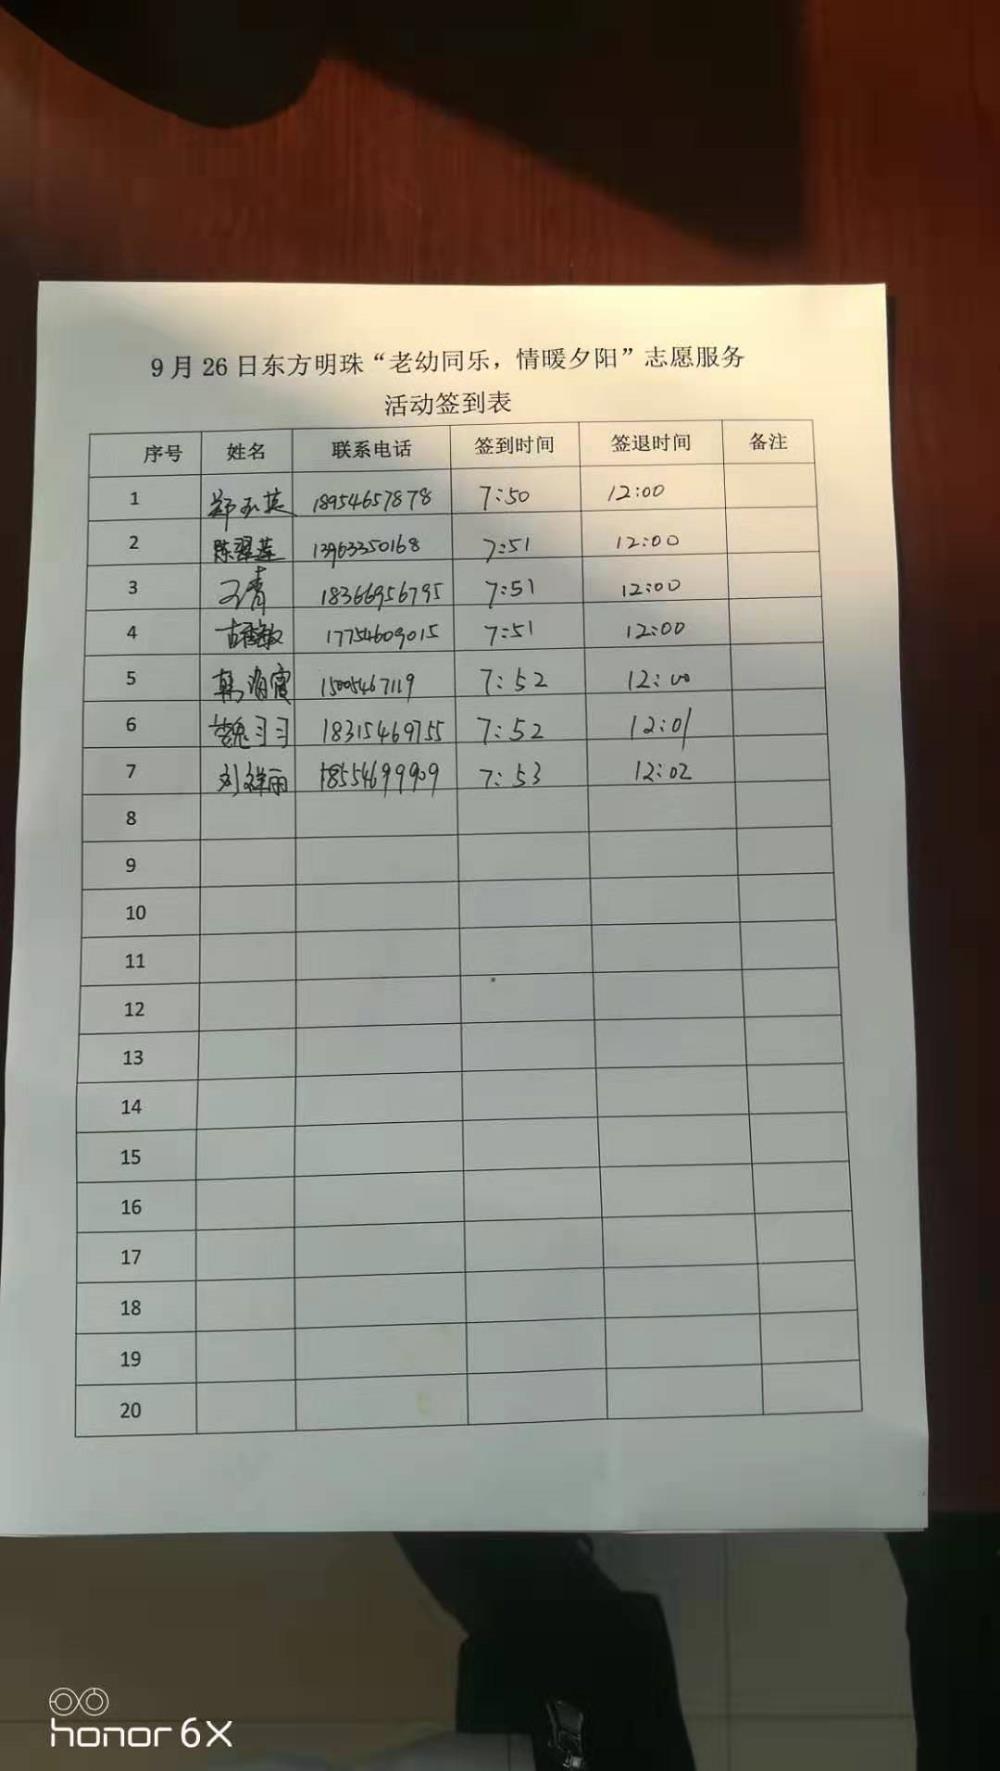 9月26日东方明珠“老幼同乐，情暖夕阳”志愿服务
活动签到表
序号 姓名 联系电话 签到时间 签退时间 备注
1 郑玉英 18954657878 7:50 12:00
2 陈翠莲 13963350168 7:51 12:00
3 王青 18366956795 7:51 12:00
4 17754609015 7:51 12:00
5 韩海霞 15005467119 7:52 12:00
6 魏习习 18315469755 7:52 12:01
7 刘祥丽 18554699909 7:53 12:02
8
9
10
11
12
13
14
15
16
17
18
19
20
honor 6X